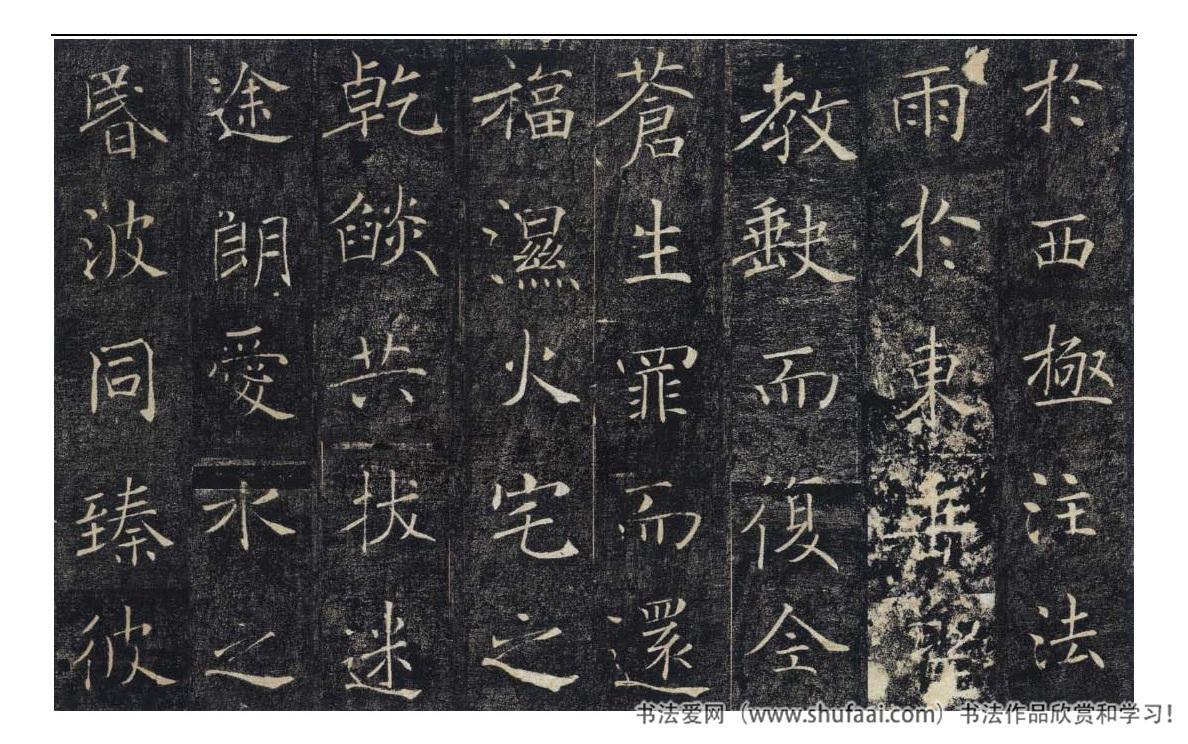 於西極注法
雨於東垂
教𡙇而復全
蒼生罪而還
福濕火宅之
乾燄共拔迷
途朗愛水之
昬波同臻彼
书法爱网（www.shufaai.com）书法作品欣赏和学习！